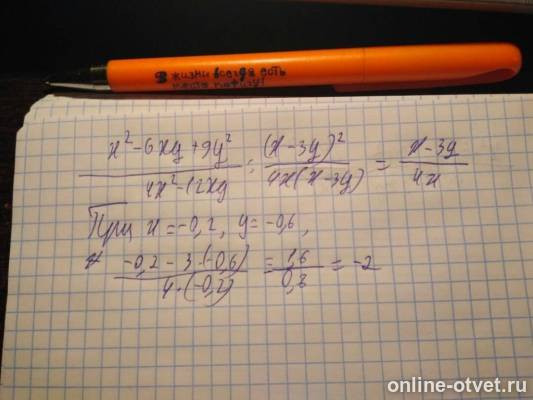 В жизни всегда есть
место пофигу!
x² - 6xy + 9y² / 4x² - 12xy = (x - 3y)² / 4x(x - 3y) = x - 3y / 4x
При x = -0,2, y = -0,6,
-0,2 - 3·(-0,6) / 4·(-0,2) = 1,6 / 0,8 = -2
online-otvet.ru